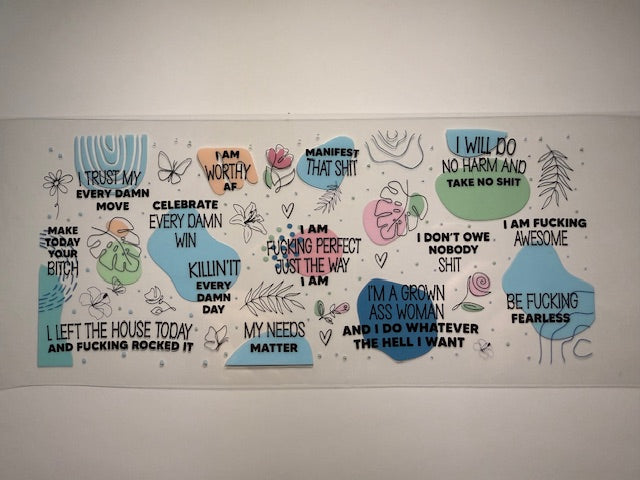 I TRUST MY
EVERY DAMN
MOVE
I AM
WORTHY
AF
MANIFEST
THAT SHIT
I WILL DO
NO HARM AND
TAKE NO SHIT
MAKE
TODAY
YOUR
BITCH
CELEBRATE
EVERY DAMN
WIN
KILLIN'IT
EVERY
DAMN
DAY
I AM
FUCKING PERFECT
JUST THE WAY
I AM
I DON'T OWE
NOBODY
SHIT
I AM FUCKING
AWESOME
I LEFT THE HOUSE TODAY
AND FUCKING ROCKED IT
MY NEEDS
MATTER
I'M A GROWN
ASS WOMAN
AND I DO WHATEVER
THE HELL I WANT
BE FUCKING
FEARLESS